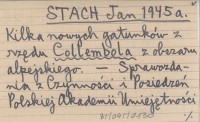 STACH Jan 1945a.
Kilka nowych gatunków z
rzędu Collembola z obszaru
alpejskiego. — Sprawozda-
nia z Czynności i Posiedzeń
Polskiej Akademii Umiejętności